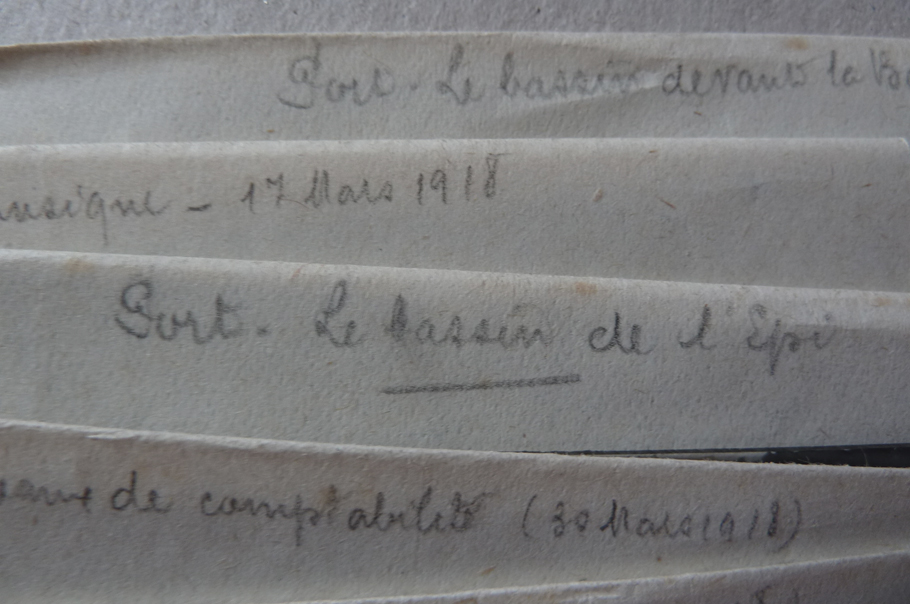 Port. Le bassin devant la
17 Mars 1918
Port. Le bassin de l'Epi
de comptabilité (30 Mars 1918)